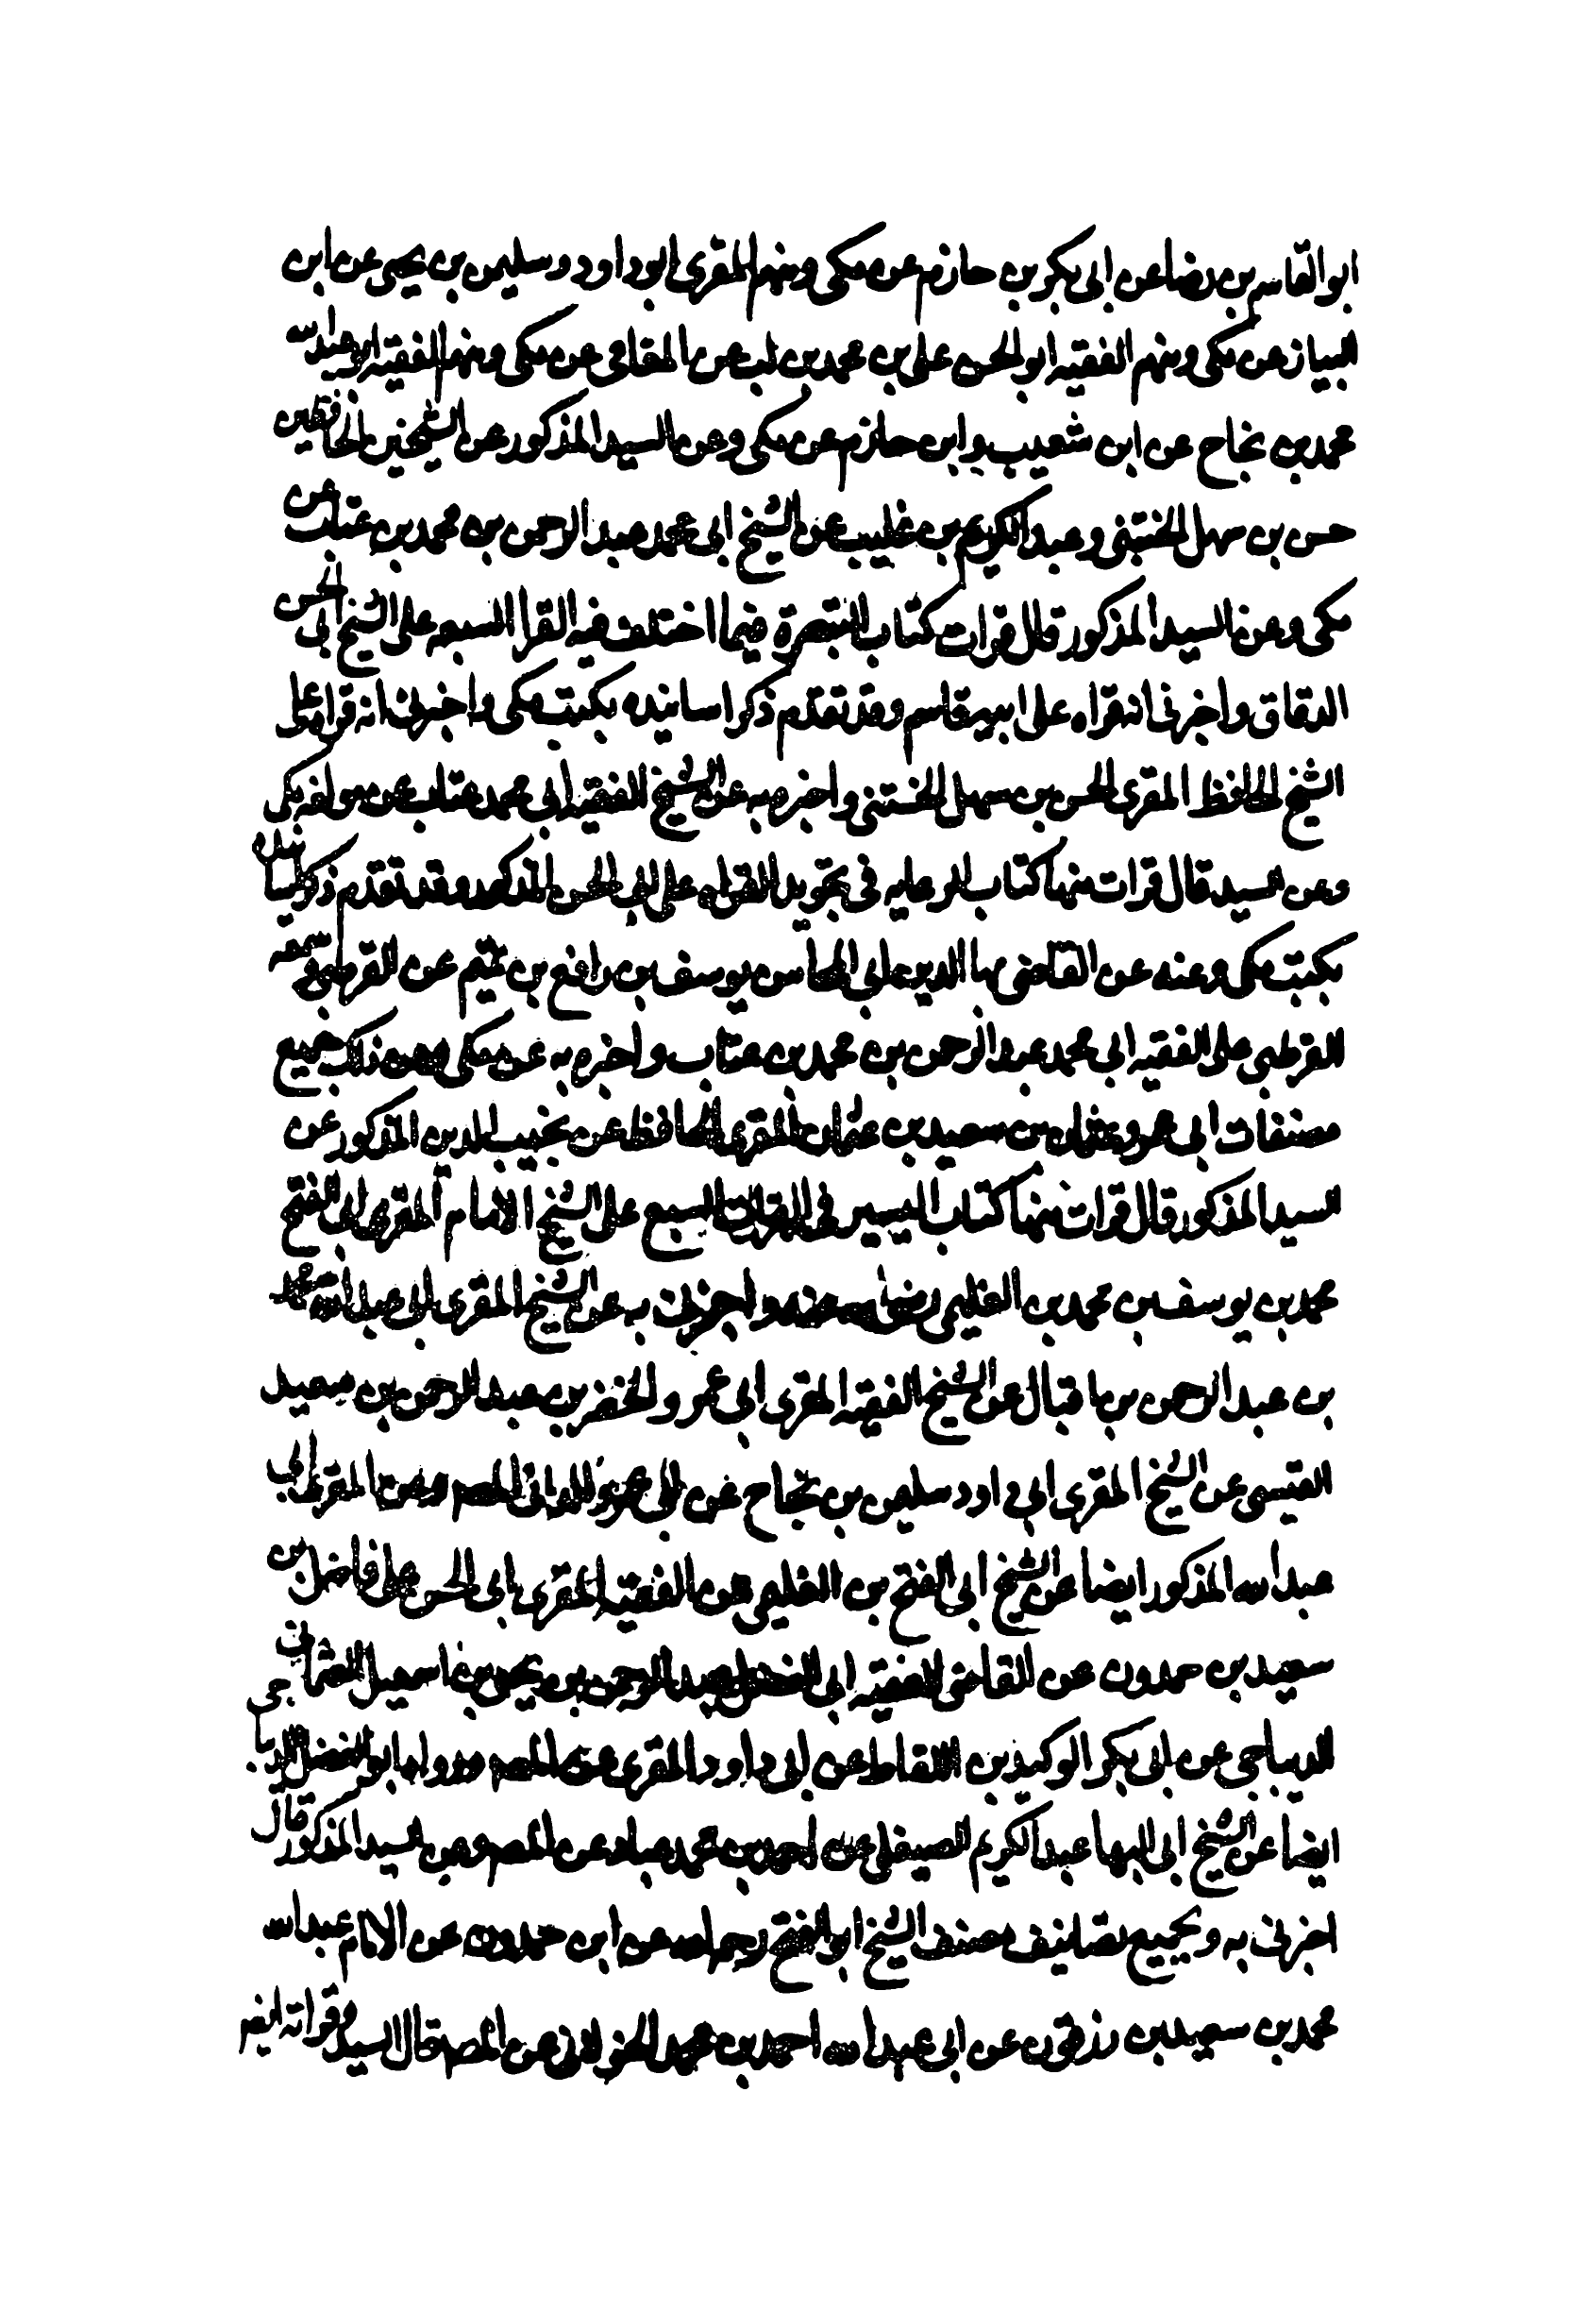 ابو القاسم بن رضا عن ابى بكر بن حازم عن مكى ومنهم المقرى ابو داود وسليمن بن يحيى عن ابن
البياز عن مكى ومنهم الفقيه ابو الحسن على بن محمد بن لب عن المغامى عن مكى ومنهم الفقيه ابو عبد الله
محمد بن نجاح عن ابن شعيب وابن حازم عن مكى وعن السيد المذكور عن الشيخين الحافظين
حسن بن سهل الخشنى وعبد الكريم بن غليب عن الشيخ ابى محمد عبد الرحمن بن محمد بن عتاب عن
مكى وعن السيد المذكور قال قرات كتاب التبصرة فيما اختلف فيه القرا السبعه على الشيخ ابى الحسن
الدقاق واخبرنى انه قراه على ابن قاسم وقد تقدم ذكر اسانيده بكتب مكى واخبرنى انه قراه على
الشيخ الحافظ المقرى الحسن بن سهل الخشنى واخبره به عن الشيخ الفقيه ابى محمد عتاب عن مولفه مكى
وعن السيد قال قرات منها كتاب الرعايه فى تجويد القراه على ابى الحسن المذكور وقد تقدم ذكر
بكتب مكى وعنه عن القاضى بها الدين ابى المحاسن يوسف بن رافع بن تميم عن القرطبى وسمعه
القرطبى على الفقيه ابى محمد عبد الرحمن بن محمد بن عتاب واخبره به عن مكى ومن ذلك جميع
مصنفات ابى عمرو عثمان بن سعيد بن عثمان المقرى الحافظ عن نجيب الدين المذكور عن
السيد المذكور قال قرات منها كتاب التيسير فى القرات السبع على الشيخ الامام المقرى ابى الفتح
محمد بن يوسف بن محمد بن الغليمى رضى الله عنه واخبرنى به عن الشيخ المقرى ابى عبد الله محمد
بن عبد الرحمن بن اقبال عن الشيخ الفقيه المقرى ابى عمرو الخضر بن عبد الرحمن بن سعيد
القيسى عن الشيخ المقرى ابى داود سليمن بن نجاح عن ابى عمرو الدانى المصنف وعن المقرى ابى
عبد الله المذكور ايضا عن الشيخ ابى الفتح بن الغليمى عن الفقيه المقرى ابى الحسن على فاضل بن
سعيد بن حمدون عن القاضى الفقيه ابى الفضل عبد الرحمن بن يحيى بن اسمعيل العثمانى
الديباجى عن ابى بكر الوكيد بن اللقاط عن ابى داود المقرى عن المصنف ورواها ابو الفضل الديباجى
ايضا عن الشيخ ابى البها عبد الكريم الصيقلى عن احمد بن محمد عباد عن المصنف وعن السيد المذكور قال
اخبرنى به وبجميع تصانيف مصنفه الشيخ ابو الفتح رحمه الله عن ابن حمدون عن الامام عبد الله
محمد بن سعيد بن زرقون عن ابى عبد الله احمد بن محمد الخولانى عن المصنف قال السيد وقراته ايضا